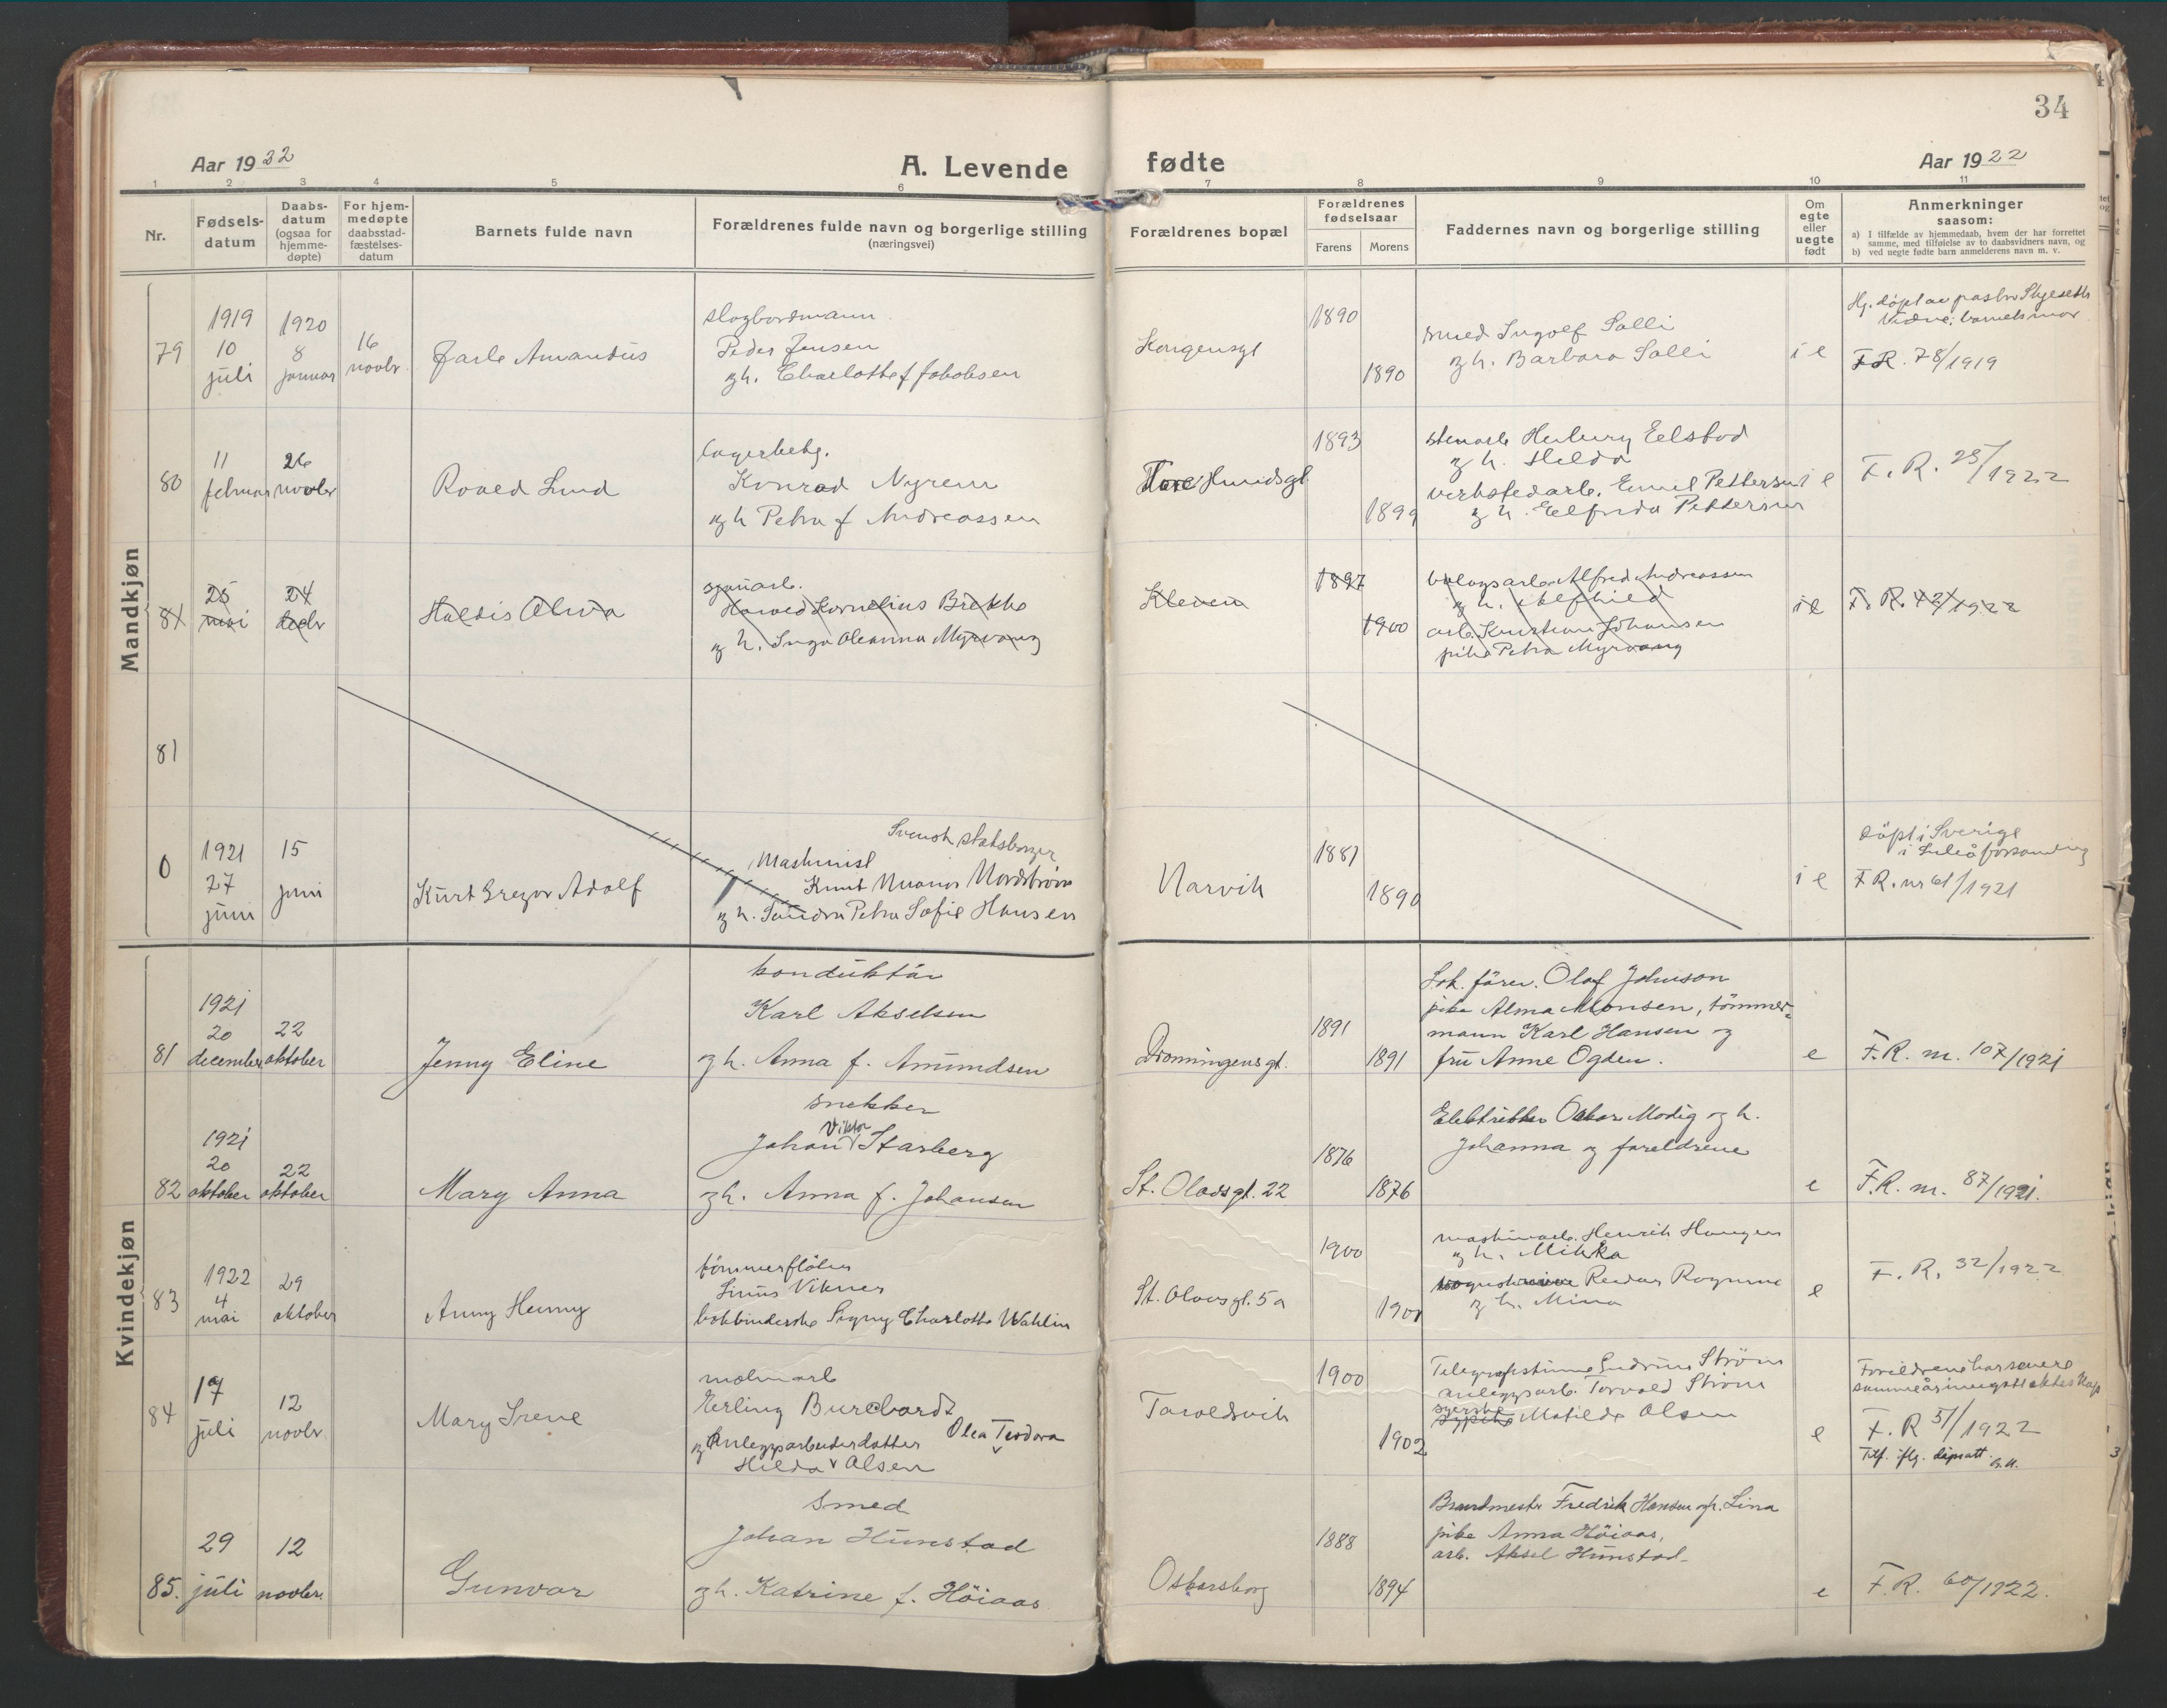 34
Aar 1922
A. Levende fødte
Aar 1922
1 2 3 4 5 6 7 8 9 10 11
Nr.
Fødsels-
datum
Daabs-
datum
(ogsaa for
hjemme-
døpte)
For hjem-
medøpte
daabsstad-
fæstelses-
datum
Barnets fulde navn
Forældrenes fulde navn og borgerlige stilling
(næringsvei)
Forældrenes bopæl
Forældrenes
fødselsaar
Farens
Morens
Faddernes navn og borgerlige stilling
Om
egte
eller
uegte
født
Anmerkninger
saasom:
a) I tilfælde av hjemmedaab, hvem der har forrettet
samme, med tilføielse av to daabsvidners navn, og
b) ved uegte fødte barn anmelderens navn m. v.
Mandkjøn
79
1919
10
juli
1920
8
januar
16
novbr.
Jarle Amandus
Peder Jensen
og h. Charlotte f Jakobsen
Kongensgt
1890
1890
smed Ingolf Salli
og h. Barbara Salli
i e
Hj. døpt av pastor
Vidne: barnets mor
F.R. 78/1919
80
11
februar
26
novbr
Roald Lund
lagerbetj.
Konrad Nyrem
og h Petra f Andreassen
Tore Hundsgt
1893
1899
og h. Hilda
verkstedarb. Emil Pettersen
og h. Elfrida Pettersen
i e
F. R. 25/1922
81
25
mai
24
decbr
Haldis Alvia
Harald Kornelius Brekke
og h. Inga Oleanna Myrvang
Kleven
1897
1900
Alfred Andreassen
og h. Alfhild
arb. Kristian Johansen
pike Petra Myrvang
i e
F. R. 42/1922
81
0
1921
27
juni
15
juni
Kurt Gregor Adolf
Svensk statsborger
Maskinist
Knut Nordstrøm
og h. Sandra Petra Sofie Hansen
Narvik
1881
1890
i e
døpt i Sverige
i Luleå forsamling
F R. nr 61/1921
Kvindekjøn
81
1921
20
december
22
oktober
Jenny Eline
konduktør
Karl Akselsen
og h. Anna f. Amundsen
Dronningensgt.
1891
1891
Lok. fører. Olaf Johnson
pike Alma Monsen, tømmer-
mann Karl Hansen og
fru Anne Ogden.
e
F.R. nr. 107/1921
82
1921
20
oktober
22
oktober
Mary Anna
snekker
Viktor
Johan Starberg
og h. Anna f. Johansen
St. Olavsgt. 22
1876
1876
Elektriker Oskar Modig og h.
Johanna og foreldrene
e
F.R. nr. 87/1921.
83
1922
4
mai
29
oktober
Anny Henny
tømmerfløter
Linus Vikner
bokbinderske Signy Charlotte Wahlin
St. Olavsgt. 5a
1900
1901
maskinarb. Henrik Haugen
og h. Mikka
Reidar Rognmo
og h. Mina
e
F. R. 32/1922
84
17
juli
12
novbr.
Mary Irene
malmarb
Erling Burchardt
og Anleggsarbeiderdatter Olea Teodora
Hilda Olsen
Taraldsvik
1900
1902
Telegrafistinne Gudrun Strøm
anleggsarb. Torvald Strøm
syerske Matilde Olsen
e
Foreldrene har senere
F. R 51/1922
Tilf. iflg. dåpsatt.
85.
29
juli
12
novbr.
Gunvor
Smed
Johan Hunstad
og h. Katrine f. Höiaas
Oskarsborg
1888
1894
Brandmester Fredrik Hansen og h. Lina
pike Anna Höiaas,
arb. Aksel Hunstad.
e
F.R. 60/1922.